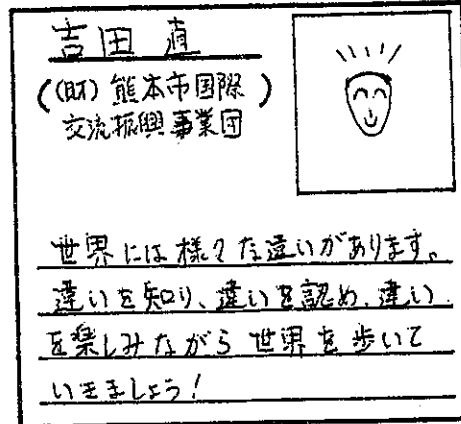 吉田 直
((財) 熊本市国際
交流振興事業団)
世界には様々な違いがあります。
違いを知り、違いを認め、違い
を楽しみながら世界を歩いて
いきましょう!